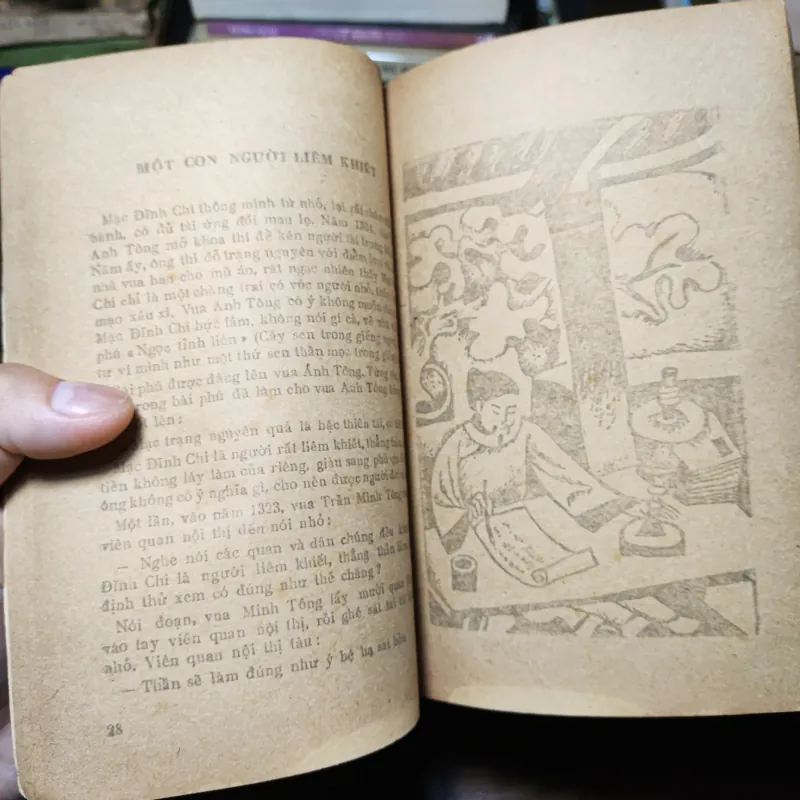 MỘT CON NGƯỜI LIÊM KHIẾT
Mạc Đĩnh Chi thông minh từ nhỏ, lại rất
hành, có đủ tài ứng đối mau lẹ. Năm
Anh Tông mở khoa thi để kén người tài
Năm ấy, ông thi đỗ trạng nguyên với điểm
nhà vua ban cho mũ áo, rất ngạc nhiên thấy
Chi chỉ là một chàng trai có vóc người nhỏ,
mạo xấu xí. Vua Anh Tông có ý không muốn
Mạc Đĩnh Chi bực lắm, không nói gì cả, về nhà
phú « Ngọc tỉnh liên » (Cây sen trong giếng
tự ví mình như một thứ sen thần mọc trong giếng
bài phú được dâng lên vua Ánh Tông.
trong bài phú đã làm cho vua Anh Tông
lên:
trạng nguyên quả là bậc thiên tài,
Mạc Đĩnh Chi là người rất liêm khiết, thẳng
tiền không lấy làm của riêng, giàu sang phú
ông không có ý nghĩa gì, cho nên được người
Một lần, vào năm 1323, vua Trần Minh Tông
viên quan nội thị đến nói nhỏ:
— Nghe nói các quan và dân chúng đều
Đĩnh Chi là người liêm khiết, thẳng thắn
định thử xem có đúng như thế chăng?
Nói đoạn, vua Minh Tông lấy mười quan
vào tay viên quan nội thị, rồi ghé sát tai
nhỏ. Viên quan nội thị tâu:
— Thần sẽ làm đúng như ý bệ hạ sai
28